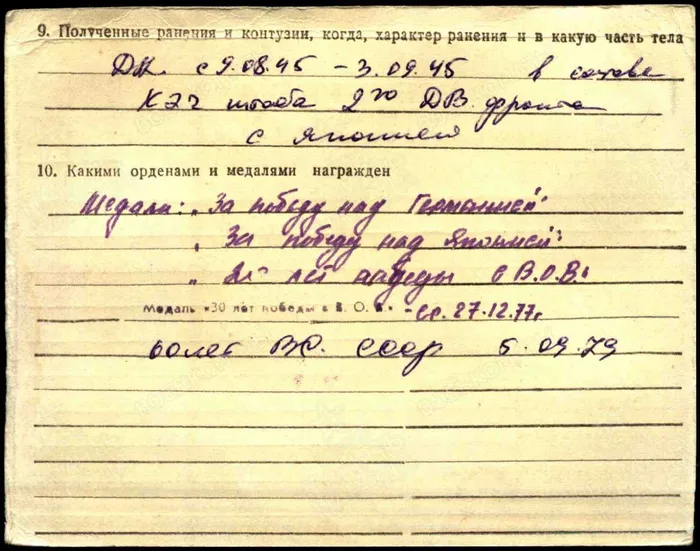 9. Полученные ранения и контузии, когда, характер ранения и в какую часть тела
ДА. с 9.08.45 – 3.09.45 в составе
КЭЧ штаба 2го ДВ. фронта
с Японией
10. Какими орденами и медалями награжден
Медали: „За победу над Германией"
„За победу над Японией"
„ лет победы в В.О.В.
Медаль «30 лет победы в В. О. В.» - 27.12.77г
60 лет ВС. СССР 5.09.79